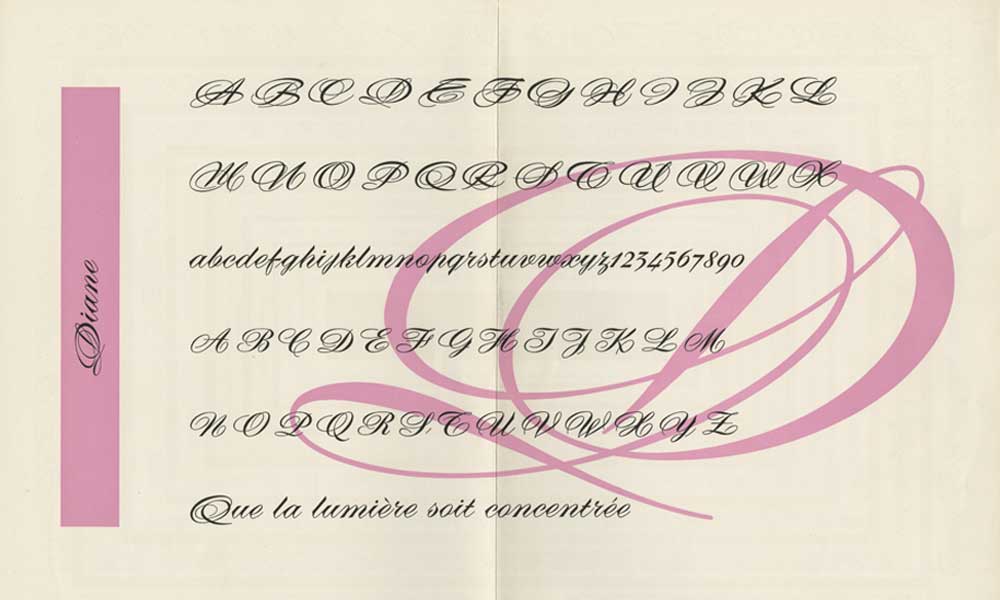 Diane
A B C D E F G H I J K L
M N O P Q R S T U V W X
abcdefghijklmnopqrstuvwxyz1234567890
A B C D E F G H I J K L M
N O P Q R S T U V W X Y Z
Que la lumière soit concentrée
D